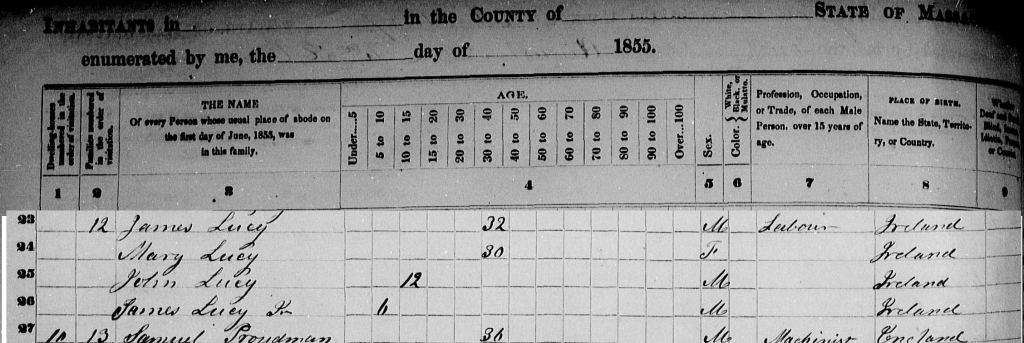 INHABITANTS in in the COUNTY of STATE OF
enumerated by me, the day of 1855.
Dwelling-houses numbered in the order of visitation.
Families numbered in the order of visitation.
THE NAME
Of every Person whose usual place of abode on
the first day of June, 1855, was
in this family.
AGE.
Under...5
5 to 10
10 to 15
15 to 20
20 to 30
30 to 40
40 to 50
50 to 60
60 to 70
70 to 80
80 to 90
90 to 100
Over...100
Sex.
Color. { White, Black, or Mulatto.
Profession, Occupation,
or Trade, of each Male
Person, over 15 years of
age.
PLACE OF BIRTH.
Name the State, Territo-
ry, or Country.
1 2 3 4 5 6 7 8 9
23 12 James Lucy 32 M Labour Ireland
24 Mary Lucy 30 F Ireland
25 John Lucy 12 M Ireland
26 James Lucy Jr 6 M Ireland
27 10 13 Samuel Proudman 36 M Machinist England